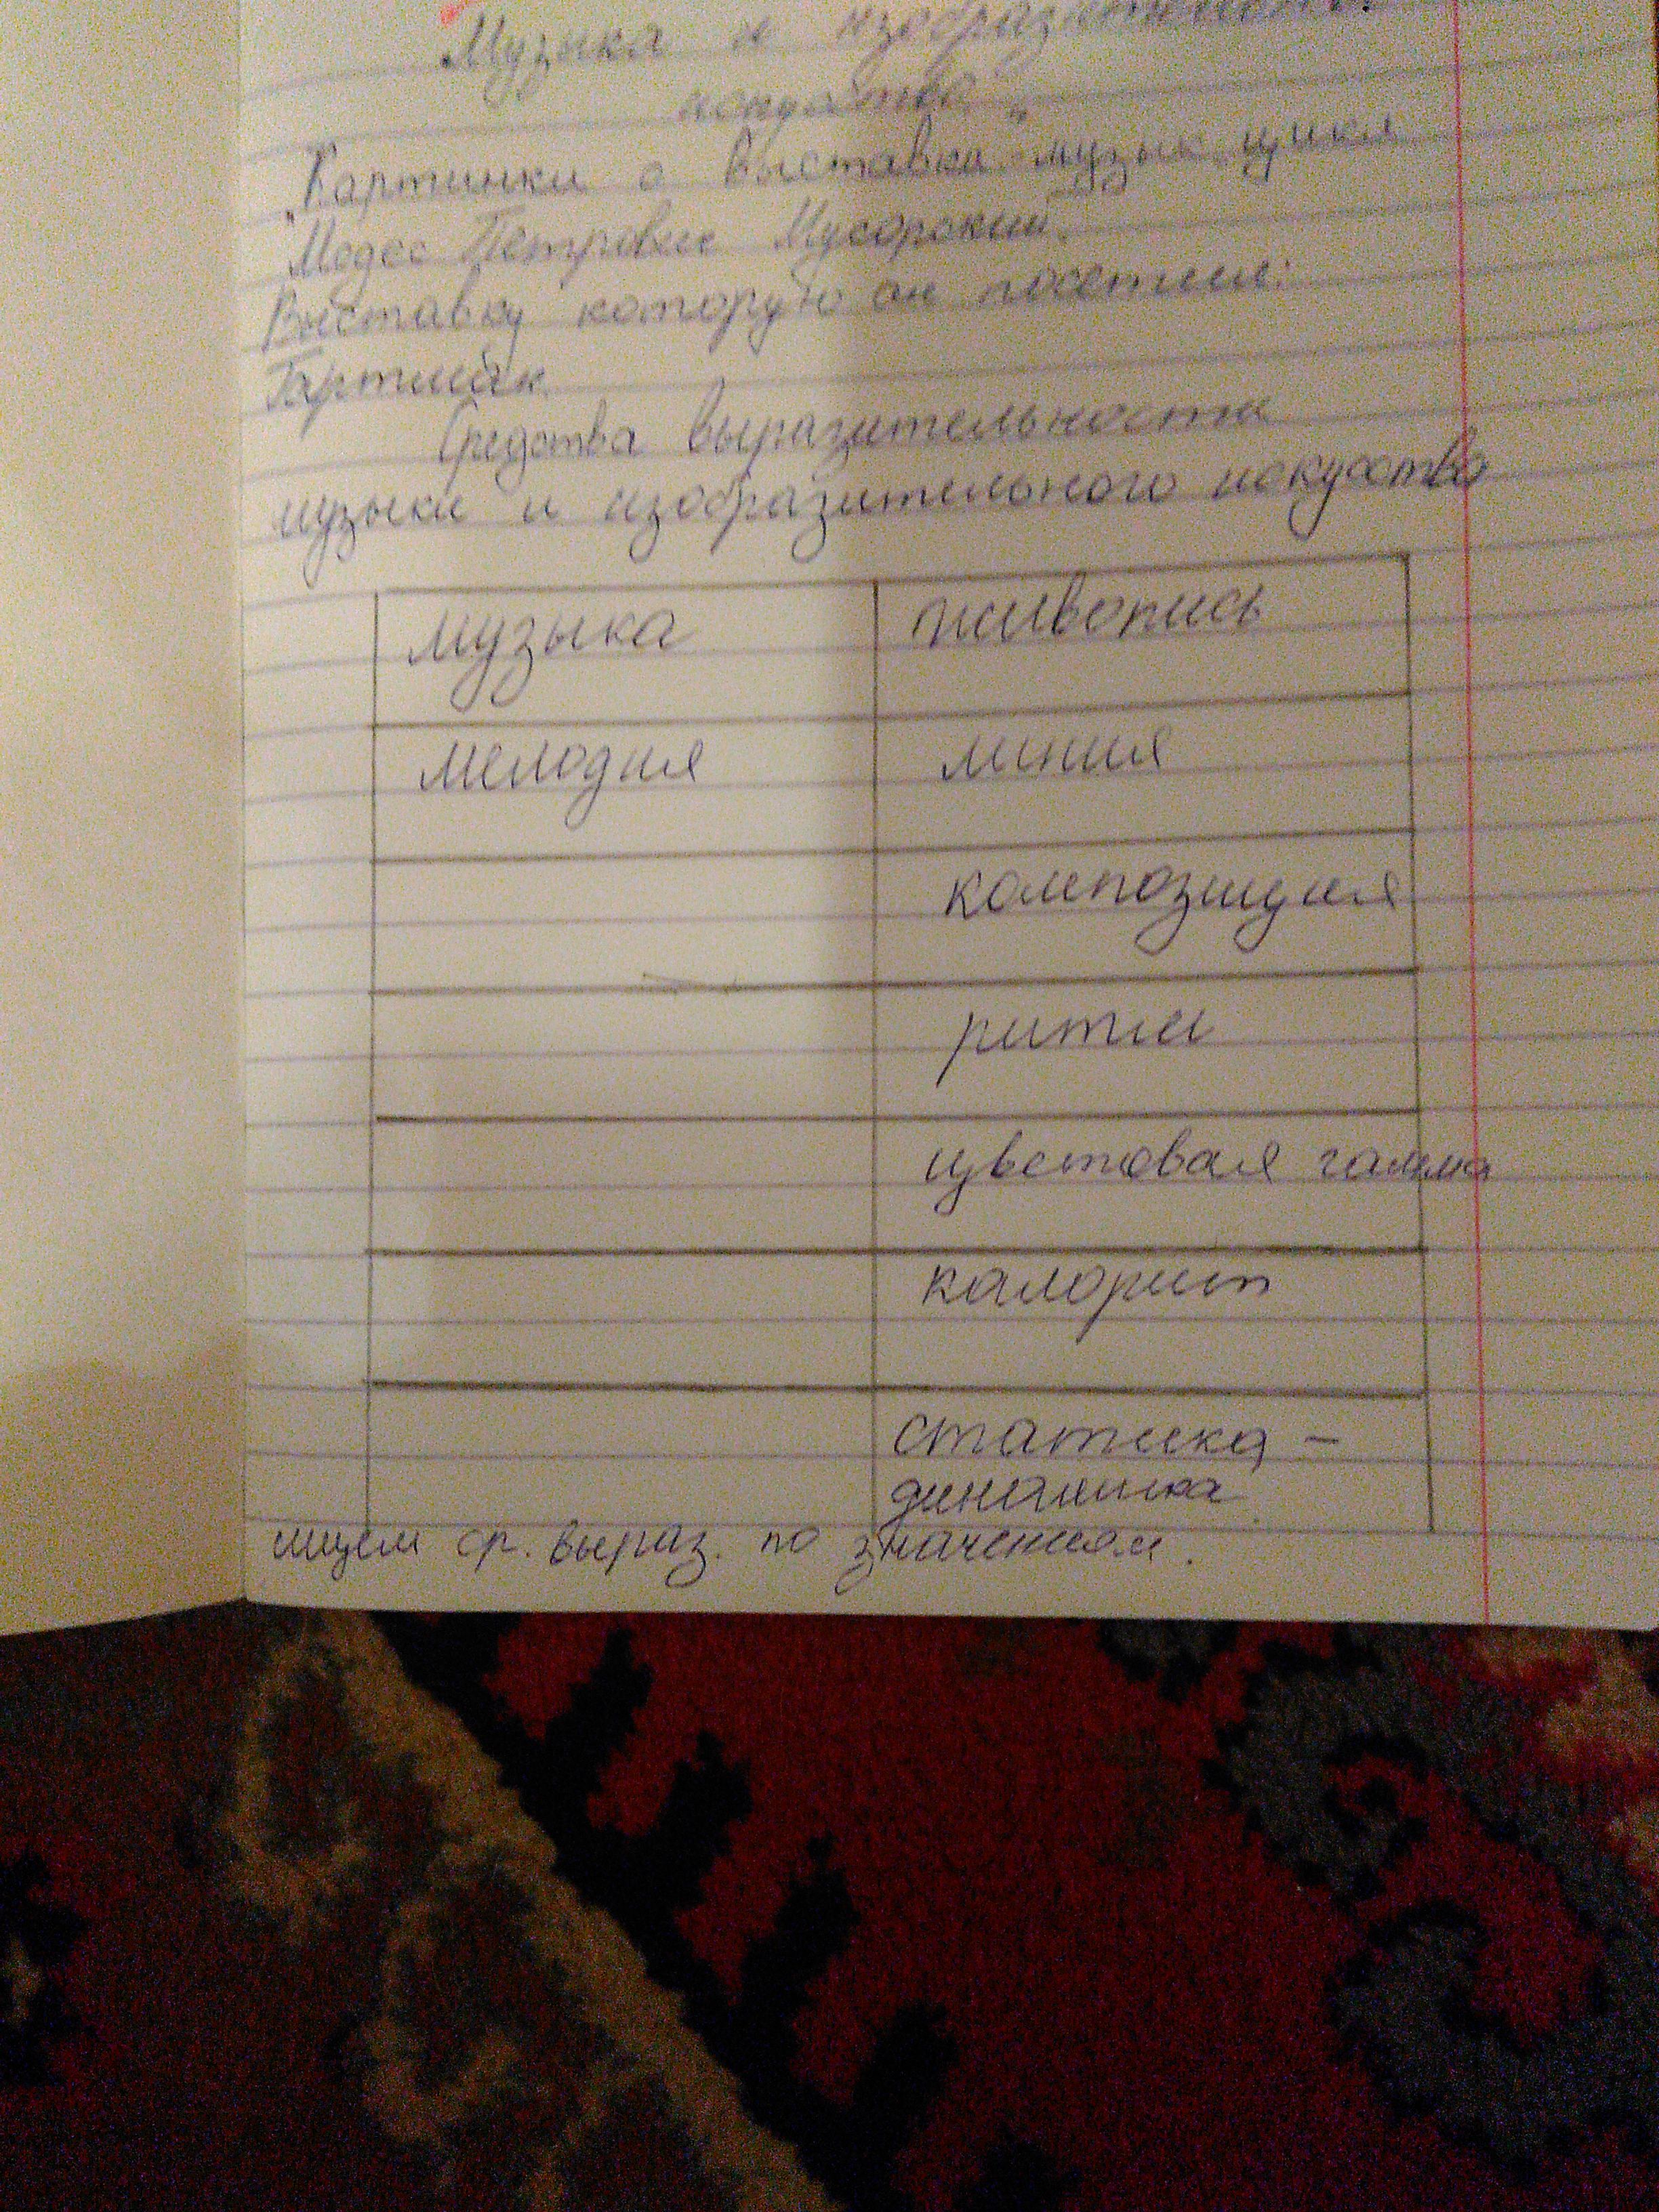 Музыка и изобразительное
искуство"
"Картинки с выставки" музык. цикл
Модес Петрович Мусоргский.
Выставку которую он посетил:
Гартман
Средства выразительности
музыки и изобразительного искусства
музыка живопись
мелодия линия
композиция
ритм
цветовая гамма
калорит
статика –
динамика
ищем ср. выраз. по значениям.